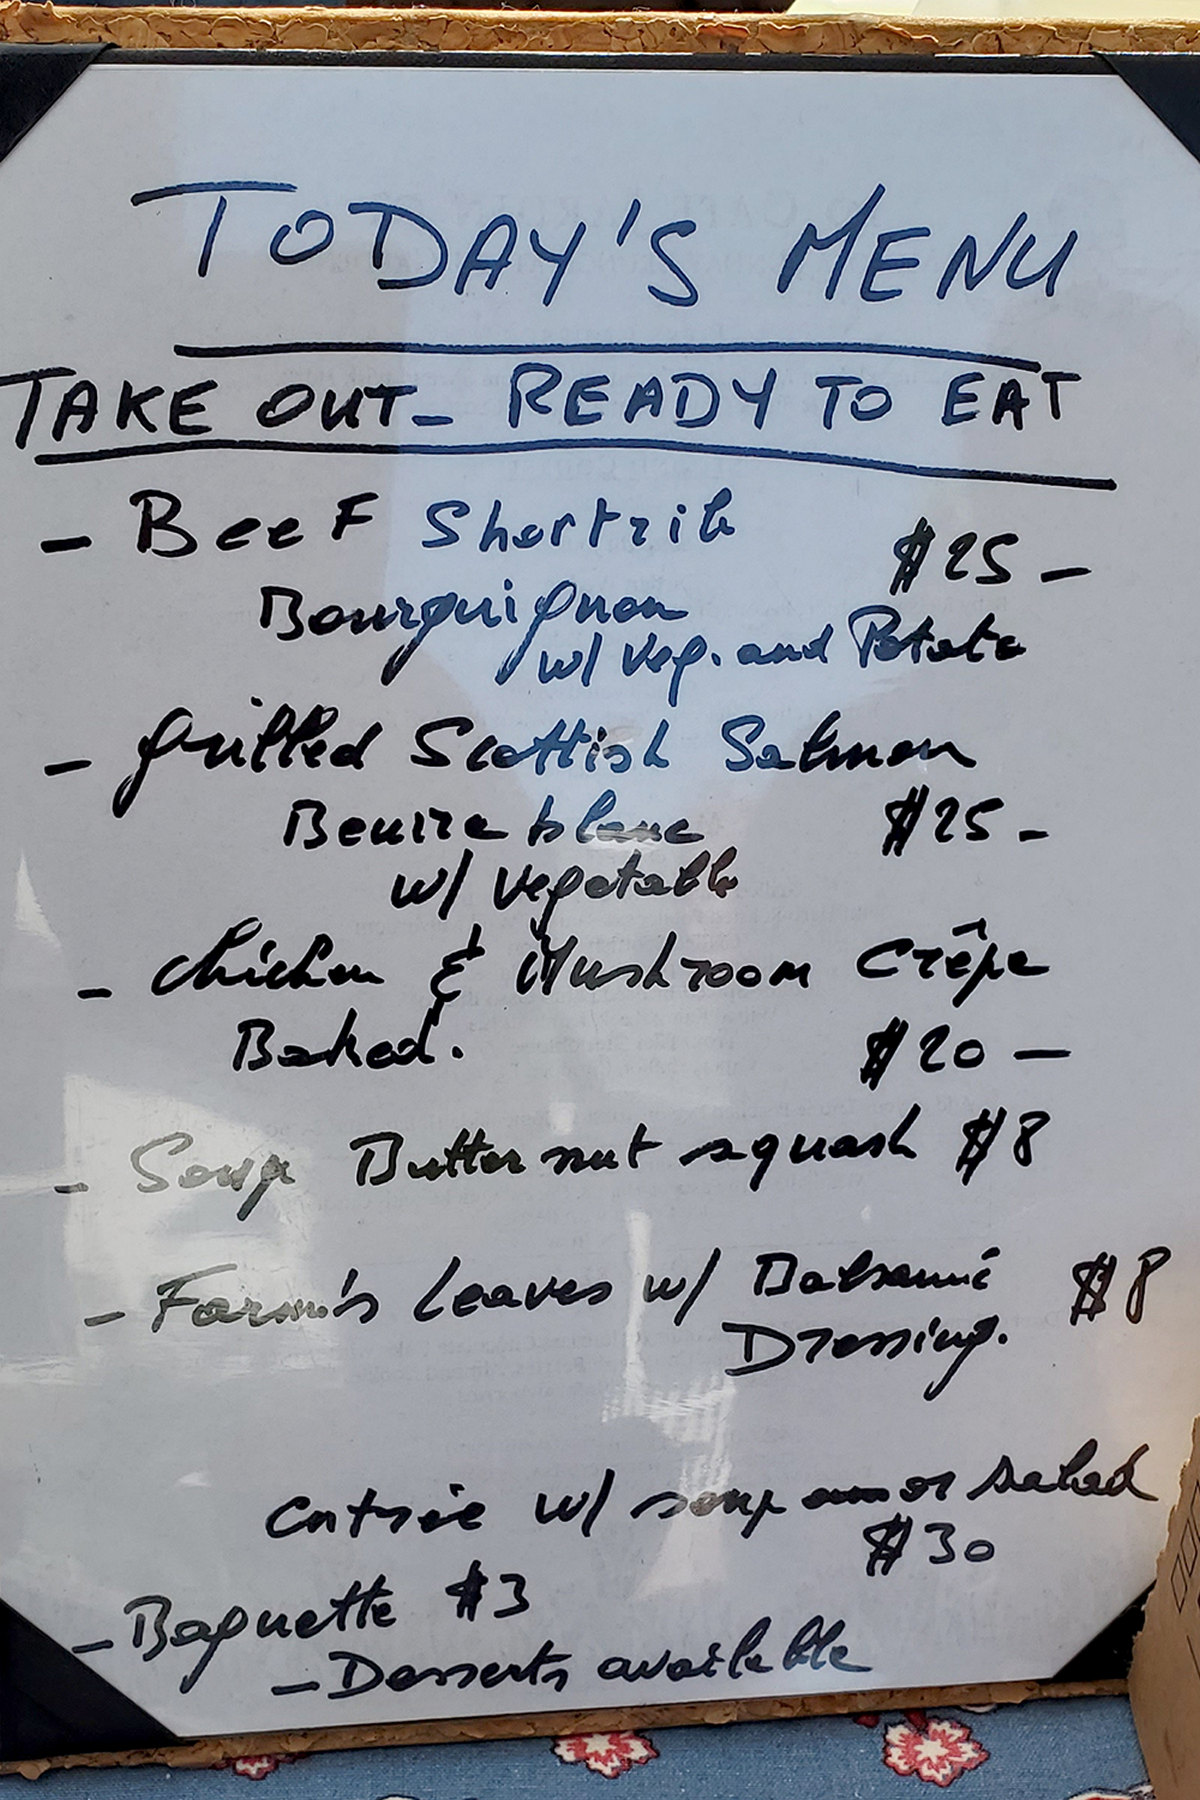 TODAY'S MENU
TAKE OUT - READY TO EAT
- Beef Shortrib
$25 -
Bourguignon
w/ Veg. and Potato
- Grilled Scottish Salmon
Beurre blanc $25 -
w/ Vegetable
- Chicken & Mushroom Crêpe
Baked. $20 -
- Soup Butternut squash $8
- Farm's Leaves w/ Balsamic $8
Dressing.
Entrée w/ soup or salad
$30
- Baguette $3
- Desserts available